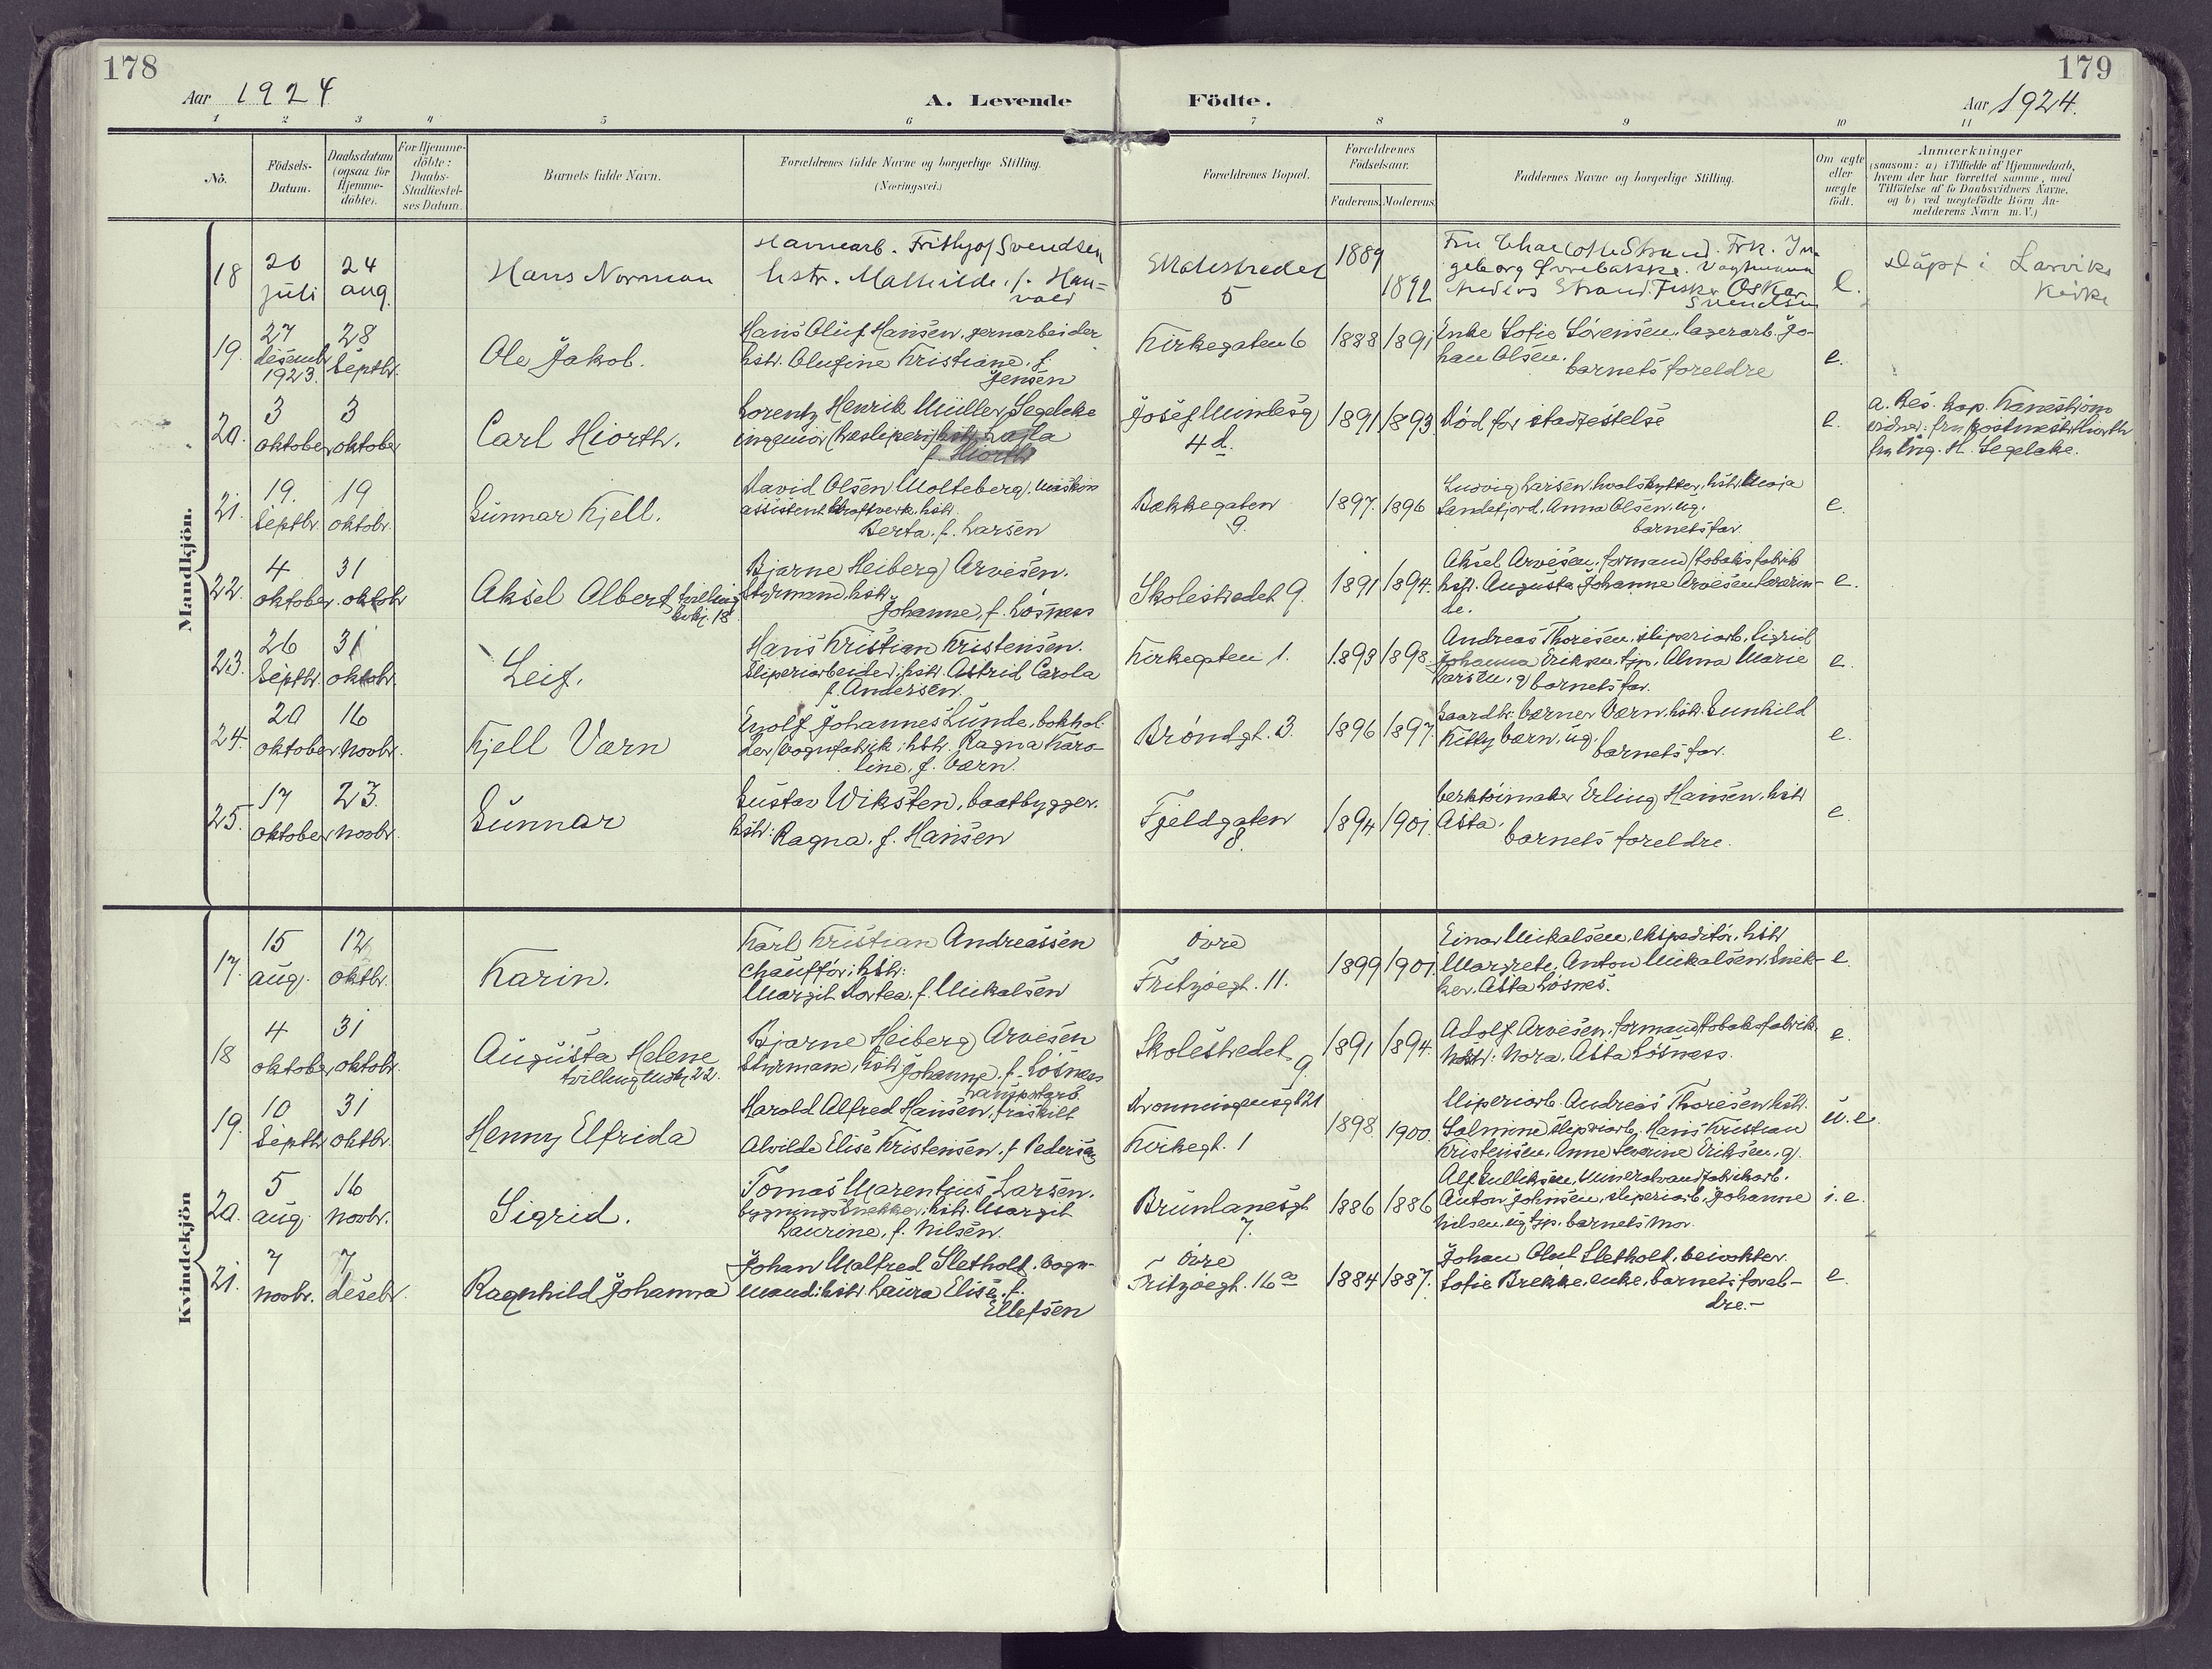 178
179
Aar 1924
A. Levende
Födte.
Aar 1924.
1 2 3 4 5 6 7 8 9 10 11
No.
Födsels-
Datum.
Daabsdatum
(ogsaa for
Hjemme-
döbte).
For Hjemme-
döbte:
Daabs-
Stadfæstel-
ses Datum.
Barnets fulde Navn.
Forældrenes fulde Navne og borgerlige Stilling.
(Næringsvei.)
Forældrenes Bopæl.
Forældrenes
Födselsaar.
Faderens. Moderens.
Faddernes Navne og borgerlige Stilling.
Om ægte
eller
uægte
födt.
Anmærkninger
(saasom: a) i Tilfælde af Hjemmedaab,
hvem der har forrettet samme, med
Tilföielse af to Daabsvidners Navne,
og b) ved uægtefödte Börn An-
melderens Navn m. V.)
Mandkjön.
18
20
juli
24
aug.
Hans Norman
Havnearb. Frithjof Svendsen
hstr. Mathilde, f. Han-
vold
5
1889
1892
Fru Strand. Frk. In-
geborg
Strand. Fisker Oskar
Svendsen
e.
Döpt i Larviks
kirke
19.
27
desembr
1923.
28
septbr.
Ole Jakob.
Hans Oluf Hansen, jernarbeider
hstr. Olufine Kristiane, f.
Jensen
Kirkegaten 6
1888
1891
Enke Sofie Sörensen, lagerarb. Jo-
han Olsen.
barnets foreldre
e.
20.
3
oktober
3
oktober
Carl Hiorth.
Lorentz Henrik Müller Segelcke
ingeniör (træsliperi) hstr. Lajla
f. Hiorth
4 d.
1891
1893
Död för stadfestelse
e.
a. Res. kap. Kaneström
vidner: fru postmester Hiorth
fru ing. H. Segelcke.
21.
19.
septbr.
19
oktobr.
Gunnar Kjell.
David Olsen Molteberg, maskin
assistent kraftverk, hstr.
Berta, f. Larsen
Bækkegaten
9.
1897.
1896
Ludvig Larsen, hvalskytter, hstr. Maja
Sandefjord, Anna Olsen, ug.
barnets far
e.
22.
4
oktober
31
oktobr
Aksel Albert tvilling
kvkj. 18
Bjarne Heiberg Arvesen.
styrmand, hstr.
Johanne, f. Lösnæs
Skolestredet 9.
1891
1894.
Aksel Arvesen, formand tobaksfabrik
hstr. Augusta Johanne Arvesen lærerin-
de.
e.
23.
26
septbr.
31
oktobr.
Leif.
Hans Kristian Kristensen.
sliperiarbeider, hstr. Astrid Carola
f. Andersen.
Kirkegaten 1.
1893
1898
Andreas Thoresen, sliperiarb., Sigrid
Johanna Eriksen, tjp., Alma Marie
Larsen, g barnets far.
e.
24.
20
oktober
16
novbr.
Kjell Værn
Enolf Johannes Lunde, bokhol-
der vognfabrik, hstr. Ragna Karo-
line, f. Værn.
Bröndgt. 3.
1896
1897.
Gaardbr. Verner Værn, hstr. Gunhild
Kitty Værn, ug.
barnets far.
e.
25.
17
oktober
23.
novbr.
Gunnar
Gustav Wiksten, baatbygger.
hstr: Ragna, f. Hansen
Fjeldgaten
8.
1894
1901.
Verktöimaker Erling Hansen, hstr
Asta.
barnets foreldre.
e.
Kvindekjön
17.
15
aug.
12
oktbr.
Karin.
Karl Kristian Andreassen
chafför; hstr:
Margit Dortea, f. Mikalsen
övre
Fritzöegt. 11.
1899
1901.
Einar Mikalsen, ekspeditör, hstr
Margrete, Anton Mikalsen, snek-
ker, Asta Lösnes.
e.
18
4
oktober
31
oktobr.
Augusta Helene
tvilling mkj. 22.
Bjarne Heiberg Arvesen
styrmann, hstr. Johanne, f. Lösnæs
Skolestredet
9.
1891
1894.
Adolf Arvesen, formand tobaksfabrik.
hstr: Nora, Asta Lösnæss.
e.
19.
10
septbr
31
oktbr.
Henny Elfrida
transportarb.
Harold Alfred Hansen, fraskilt
Alvilde Elise Kristensen, f. Pedersen
Dronningensgt 21
Kirkegt. 1
1898
1900.
Sliperiarb. Andreas Thoresen, hstr.
Salmine, sliperiarb. Hans Kristian
Kristensen, Anne Severine Eriksen, g.
u. e.
20.
5
aug.
16
novbr.
Sigrid.
Tomas Marentius Larsen.
bygningssnekker, hstr. Margit
Laurine, f. Nilsen.
Brunlanesgt
7.
1886
1886
Alf Gulliksen, Mineralvandfabrikarb.
Anton Johnsen, sliperiarb., Johanne
Nilsen, ug tjp. barnets mor.
i. e.
21.
7
novbr.
7
desebr.
Ragnhild Johanna
Johan Malfred Sletholt, vogn-
mand: hstr. Laura Elise, f.
Ellefsen
övre
Fritzöegt. 16 a
1884
1887.
Johan Oluf Sletholt, beivokter.
Sofie Brekke, enke, barnets forel-
dre.-
e.